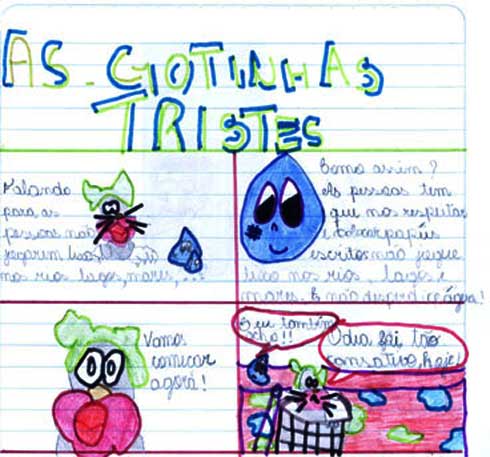 AS GOTINHAS
TRISTES
Falando
para as
pessoas não
jogarem lixo,
nos rios lagos, mares, ...
Como assim?
As pessoas tem
que nos respeitar
e colocar papéis
escritos não jogue
lixo nos rios, lagos e
mares. E não água!
Vamos
começar
agora!
E eu também
acho!!
O dia foi tão
cansativo, hoje!